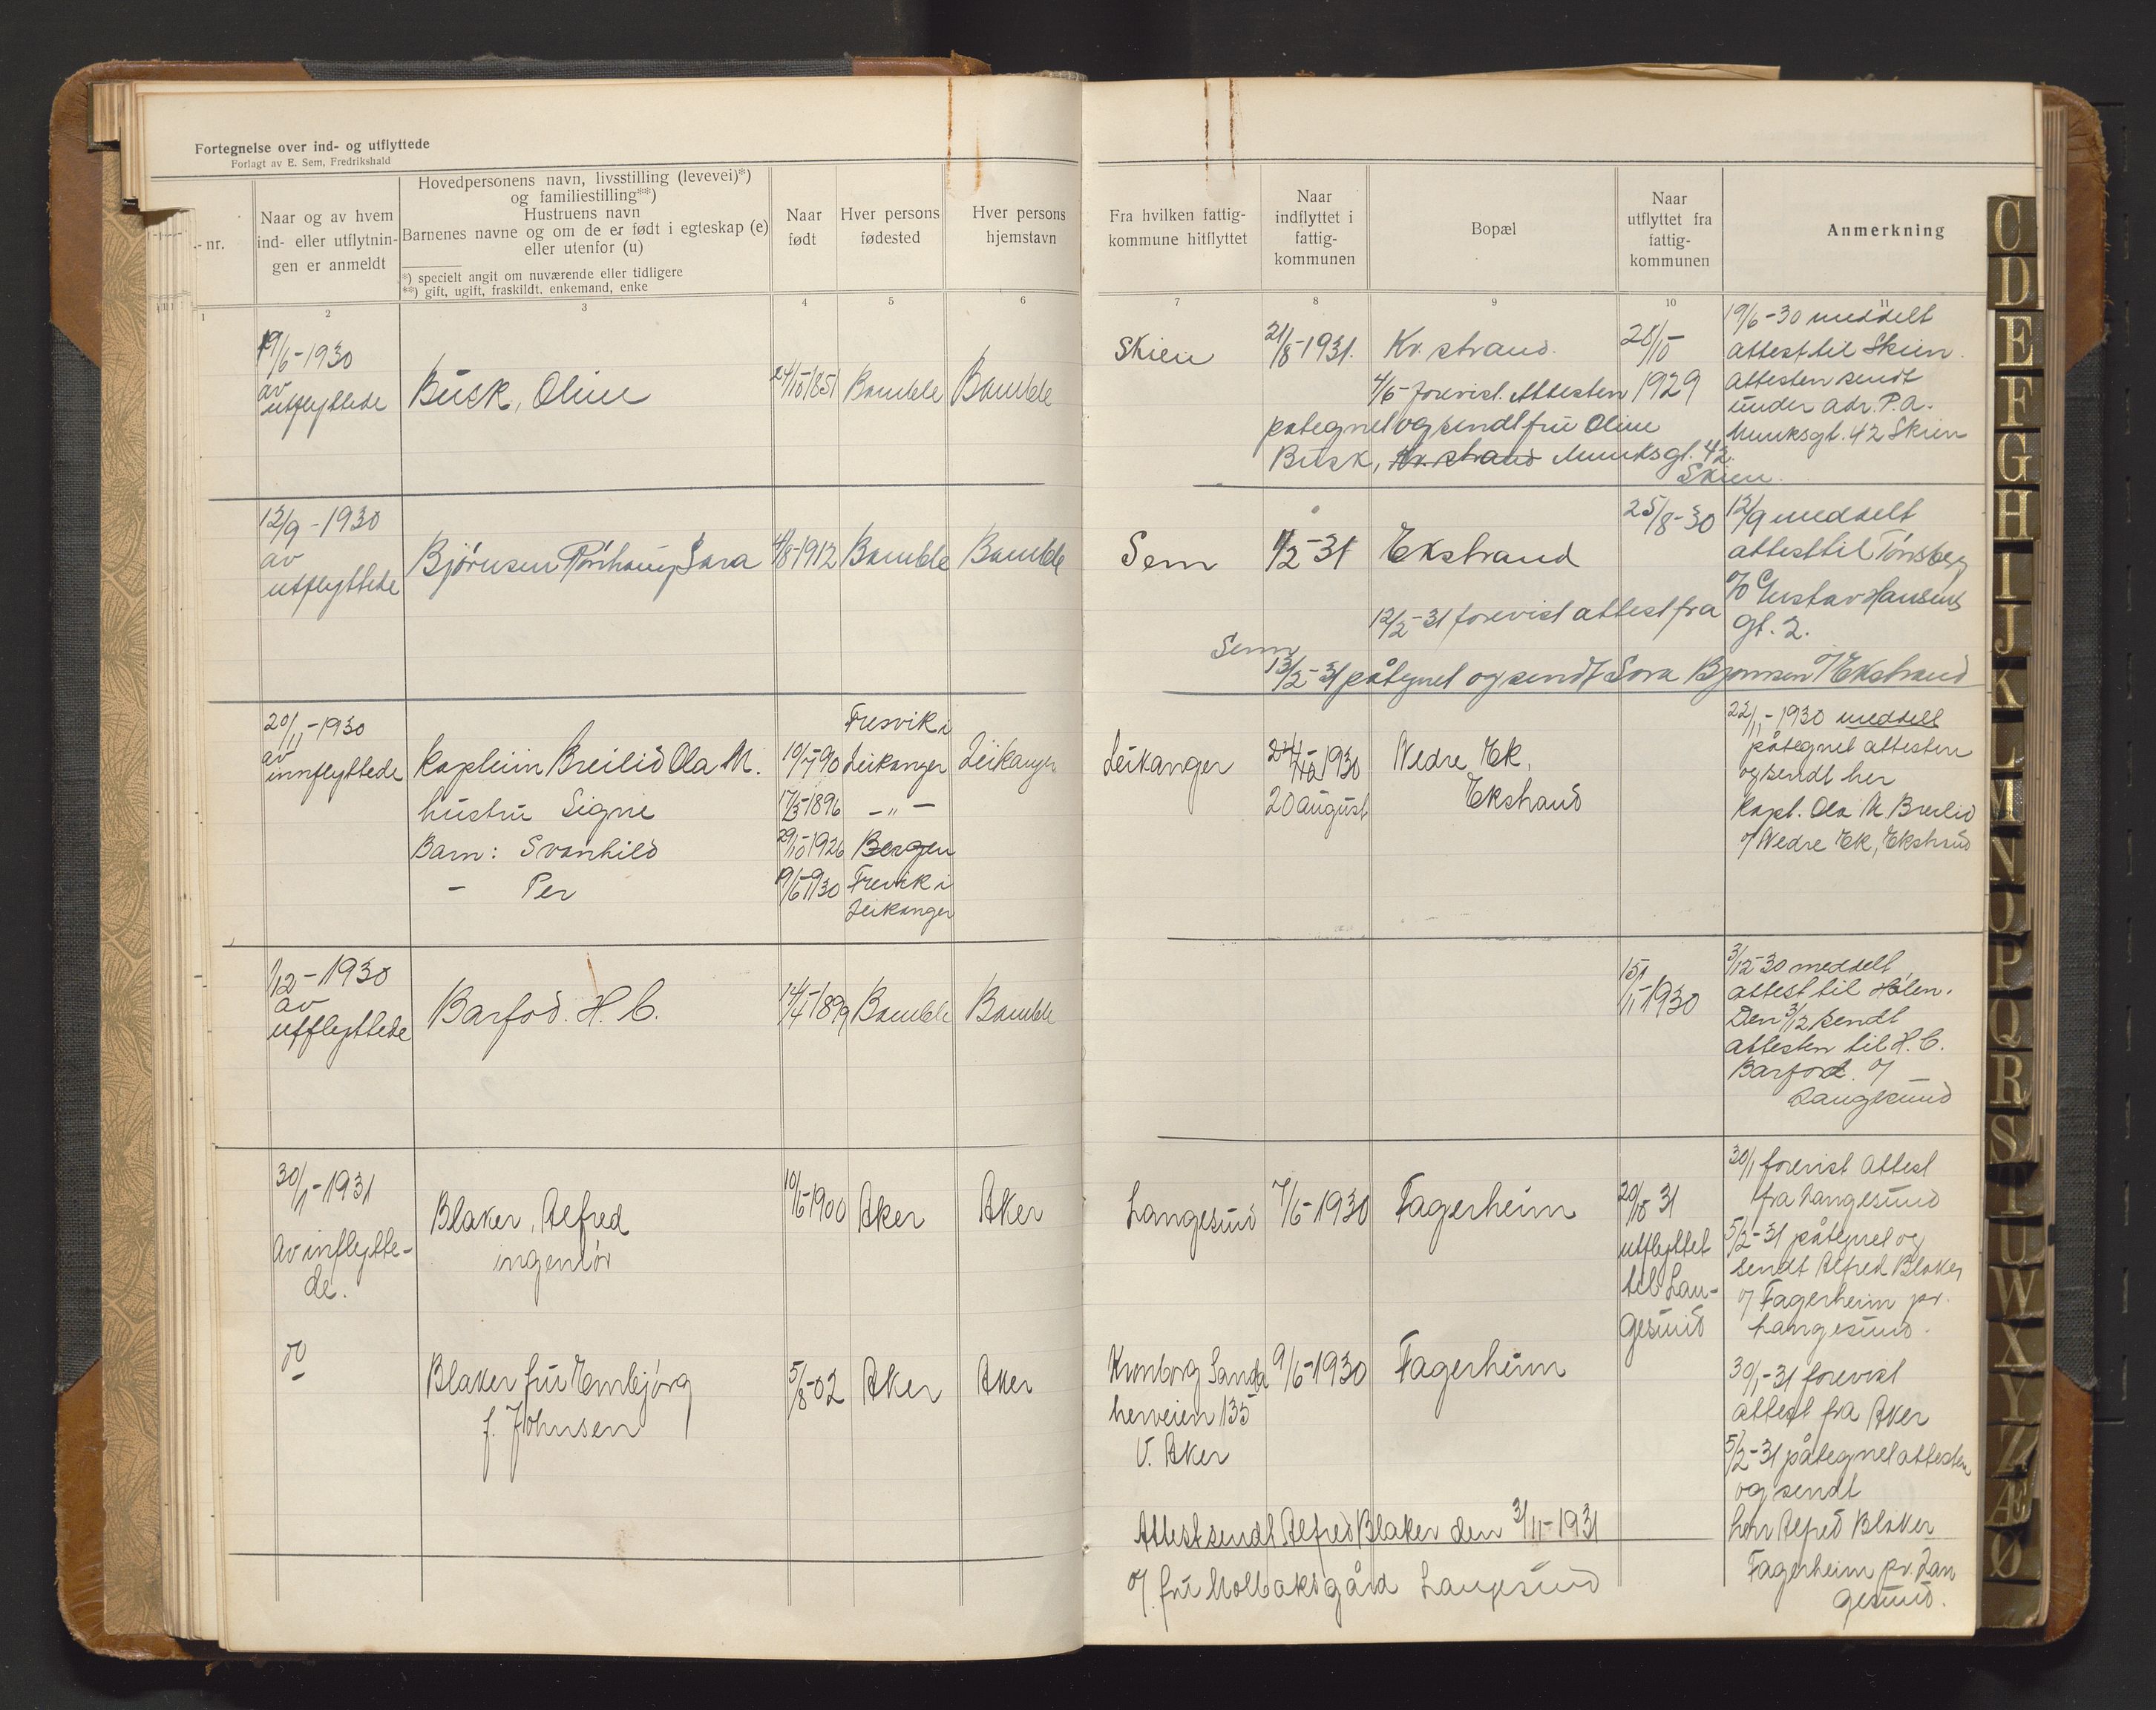 Fortegnelse over ind- og utflyttede
Forlagt av E. Sem, Fredrikshald
- nr.
Naar og av hvem
ind- eller utflytnin-
gen er anmeldt
Hovedpersonens navn, livsstilling (levevei)*)
og familiestilling**)
Hustruens navn
Barnenes navne og om de er født i egteskap (e)
eller utenfor (u)
*) specielt angit om nuværende eller tidligere
**) gift, ugift, fraskildt, enkemand, enke
Naar
født
Hver persons
fødested
Hver persons
hjemstavn
Fra hvilken fattig-
kommune hitflyttet
Naar
indflyttet i
fattig-
kommunen
Bopæl
Naar
utflyttet fra
fattig-
kommunen
Anmerkning
1 2 3 4 5 6 7 8 9 10 11
19/6-1930
av
utflyttede
Busk, Oline
24/10 1851
Bamble
Bamble
Skien
21/8-1931.
Kr. strand.
4/6 forevist. Attesten
pategnet og sendt fru Oline
Busk, Kr. strand Munksgt. 42.
Skien.
28/10
1929
19/6-30 meddelt
attest til Skien.
attesten sendt
under adr. P.a.
Munksgt. 42 Skien
12/9-1930
av
utflyttede
Björnsen Sara
4/8-1912
Bamble
Bamble
Sem
1/2-31
Ekstrand
12/2-31 forevist attest fra
Sem
13/2-31 påtegnet og sendt Sara Bjørnsen Ekstrand
25/8-30
12/9 meddelt
attest til Tönsberg
Gustav Hansens
gt. 2.
20/11-1930
av
innflyttede
Kaptein Breilid Ola M.
hustru Signe
Barn: Svanhild
- Per
10/7-90
17/3-1896
29/10 1926
9/6-1930
Fresvik i
Leikanger
- " -
Bergen
Fresvik i
Leikanger
Leikanger
Leikanger
1930
20 august
Nedre Ek,
Ekstrand
22/11-1930 meddelt
påtegnet attesten
og sendt her
Kapt. Ola M Breilid
Nedre Ek, Ekstrand
1/12-1930
av
utflyttede
Barfod. H. C.
14/4-1899
Bamble
Bamble
15/11-1930
3/12-30 meddelt
attest til Hölen.
Den 3/12 sendt
attesten til H. C.
Barfod.
Langesund
30/1-1931
Av inflytte-
de.
Blaker, Alfred
ingeniör
10/6-1900
Aker
Aker
Langesund
7/6-1930
Fagerheim
20/10 31
utflyttet
til Lan-
gesund
30/1 forevist Attest
fra Langesund
5/2-31 påtegnet og
sendt Alfred Blaker
Fagerheim pr.
Langesund.
do
Blaker fru Embjørg
f. Johnsen
5/8-02
Aker
Aker
Kronborg Sanda
herveien 135
V. Aker
9/6-1930
Fagerheim
30/1-31 forevist
attest fra Aker
5/2-31 påtegnet attesten
og sendt
herr Alfred Blaker
Fagerheim pr. Lan
gesund.
Attest sendt Alfred Blaker den 3/11-1931
fru Molbaksgård Langesund
C
D
E
F
G
H
I
J
K
L
M
N
O
P
Q
R
S
T
U
W
X
Y
Z
Æ
Ø